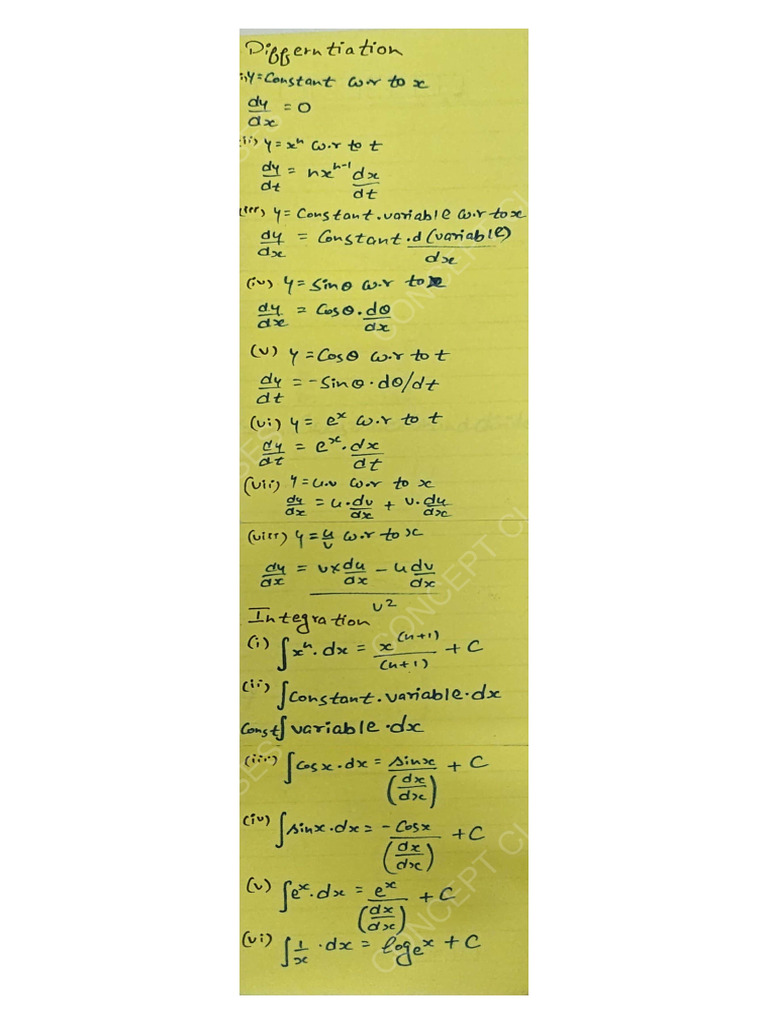 Differntiation
i) y = Constant w.r to x
dy/dx = 0
ii) y = xⁿ w.r to t
dy/dt = nxⁿ⁻¹ dx/dt
(iii) y = Constant.variable w.r to x
dy/dx = Constant.d(variable)/dx
(iv) y = Sinθ w.r to x
dy/dx = Cosθ.dθ/dx
(v) y = Cosθ w.r to t
dy/dt = -Sinθ.dθ/dt
(vi) y = eˣ w.r to t
dy/dt = eˣ.dx/dt
(vii) y = u.v w.r to x
dy/dx = u.dv/dx + v.du/dx
(viii) y = u/v w.r to x
dy/dx = (v×du/dx - u dv/dx)/v²
Integration
(i) ∫xⁿ.dx = x⁽ⁿ⁺¹⁾/(n+1) + C
(ii) ∫Constant.variable.dx
Const∫variable.dx
(iii) ∫Cosx.dx = sinx/(dx/dx) + C
(iv) ∫sinx.dx = -Cosx/(dx/dx) + C
(v) ∫eˣ.dx = eˣ/(dx/dx) + C
(vi) ∫1/x.dx = logₑx + C
CONCEPT CL
CONCEPT CL
CONCEPT CL